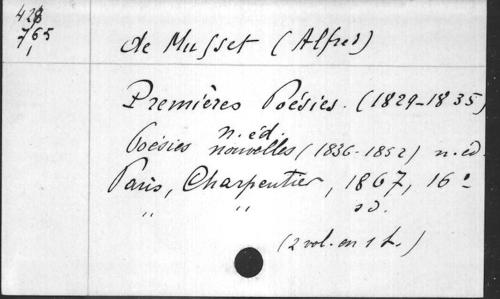 428
765
de Musset (Alfred)
Premières Poésies. (1829-1835)
n. éd.
Poésies nouvelles (1836-1852) n. éd.
Paris, Charpentier, 1867, 16º
" " s d.
(2 vol. en 1 t.)